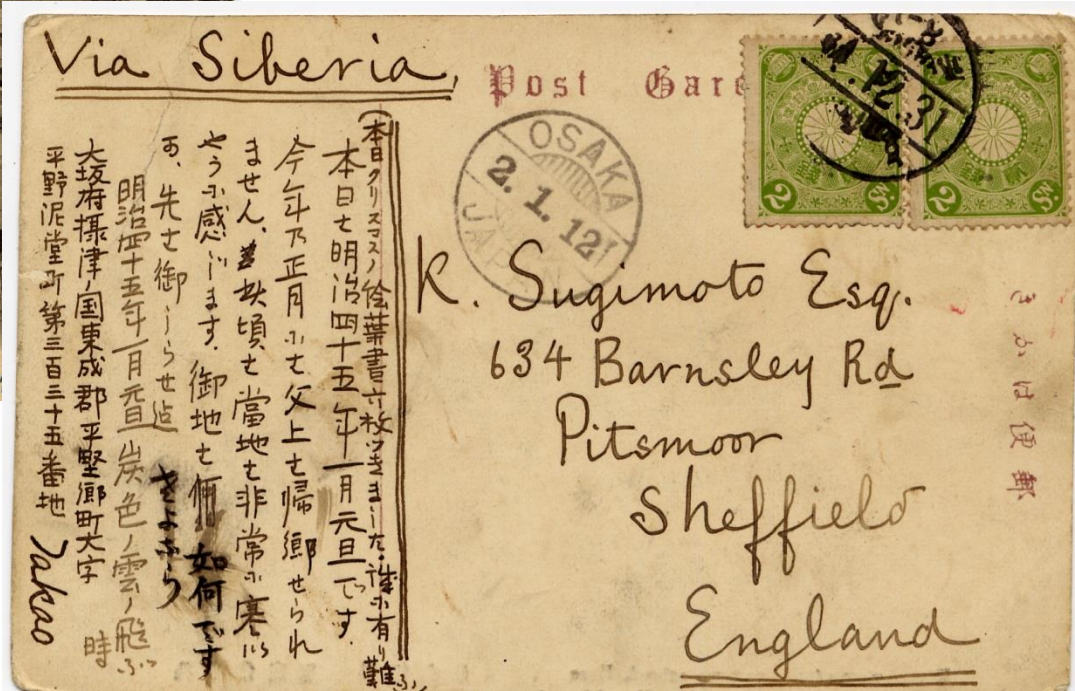 Via Siberia,
Post Car
OSAKA
2. 1. 12
JAPAN
2 Sn.
2 Sn.
K. Sugimoto Esq.
634 Barnsley Rd
Pitsmoor
Sheffield
England
きかは便郵
(本日クリスマスノ絵葉書六枚つきました。誠に有り難ふ
本日は明治四十五年一月元旦です.
今年乃正月には父上は帰郷せられ
ません、此頃は當地は非常に寒い
やうに感じます. 御地は 如何です
か、先は御しらせ迄 さよふら
明治四十五年一月元旦 炭色ノ雲ノ飛ぶ時
大坂府摂津ノ国東成郡平野郷町大字
平野泥堂町第三百三十五番地
Takao